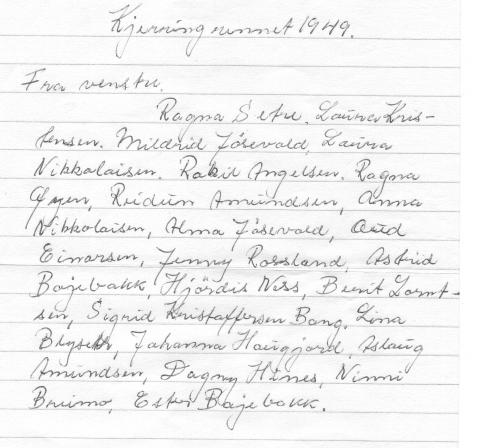 Kjerringrennet 1949.
Fra venstre.
Ragna Setre, Laura Kris-
tensen. Mildrid Jøsevold, Laura
Nikkolaisen. Rakil Angelsen. Ragna
Øyen, Reidun Amundsen, Anna
Nikkolaisen, Alma Jøsevold, Aud
Einarsen, Jenny Rossland, Astrid
Bøjebakk, Hjördis Ness, Berit Lornt-
sen, Sigrid Kristoffersen Bang. Lina
Johanna Haugjord, Aslaug
Amundsen, Dagny Hines, Ninni
Bruimo, Ester Bøjebakk.